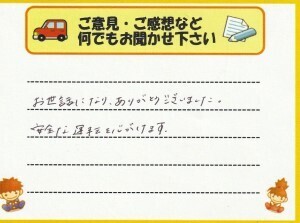 ご意見・ご感想など
何でもお聞かせ下さい
お世話になり、ありがとうございました。
安全な運転を心がけます。